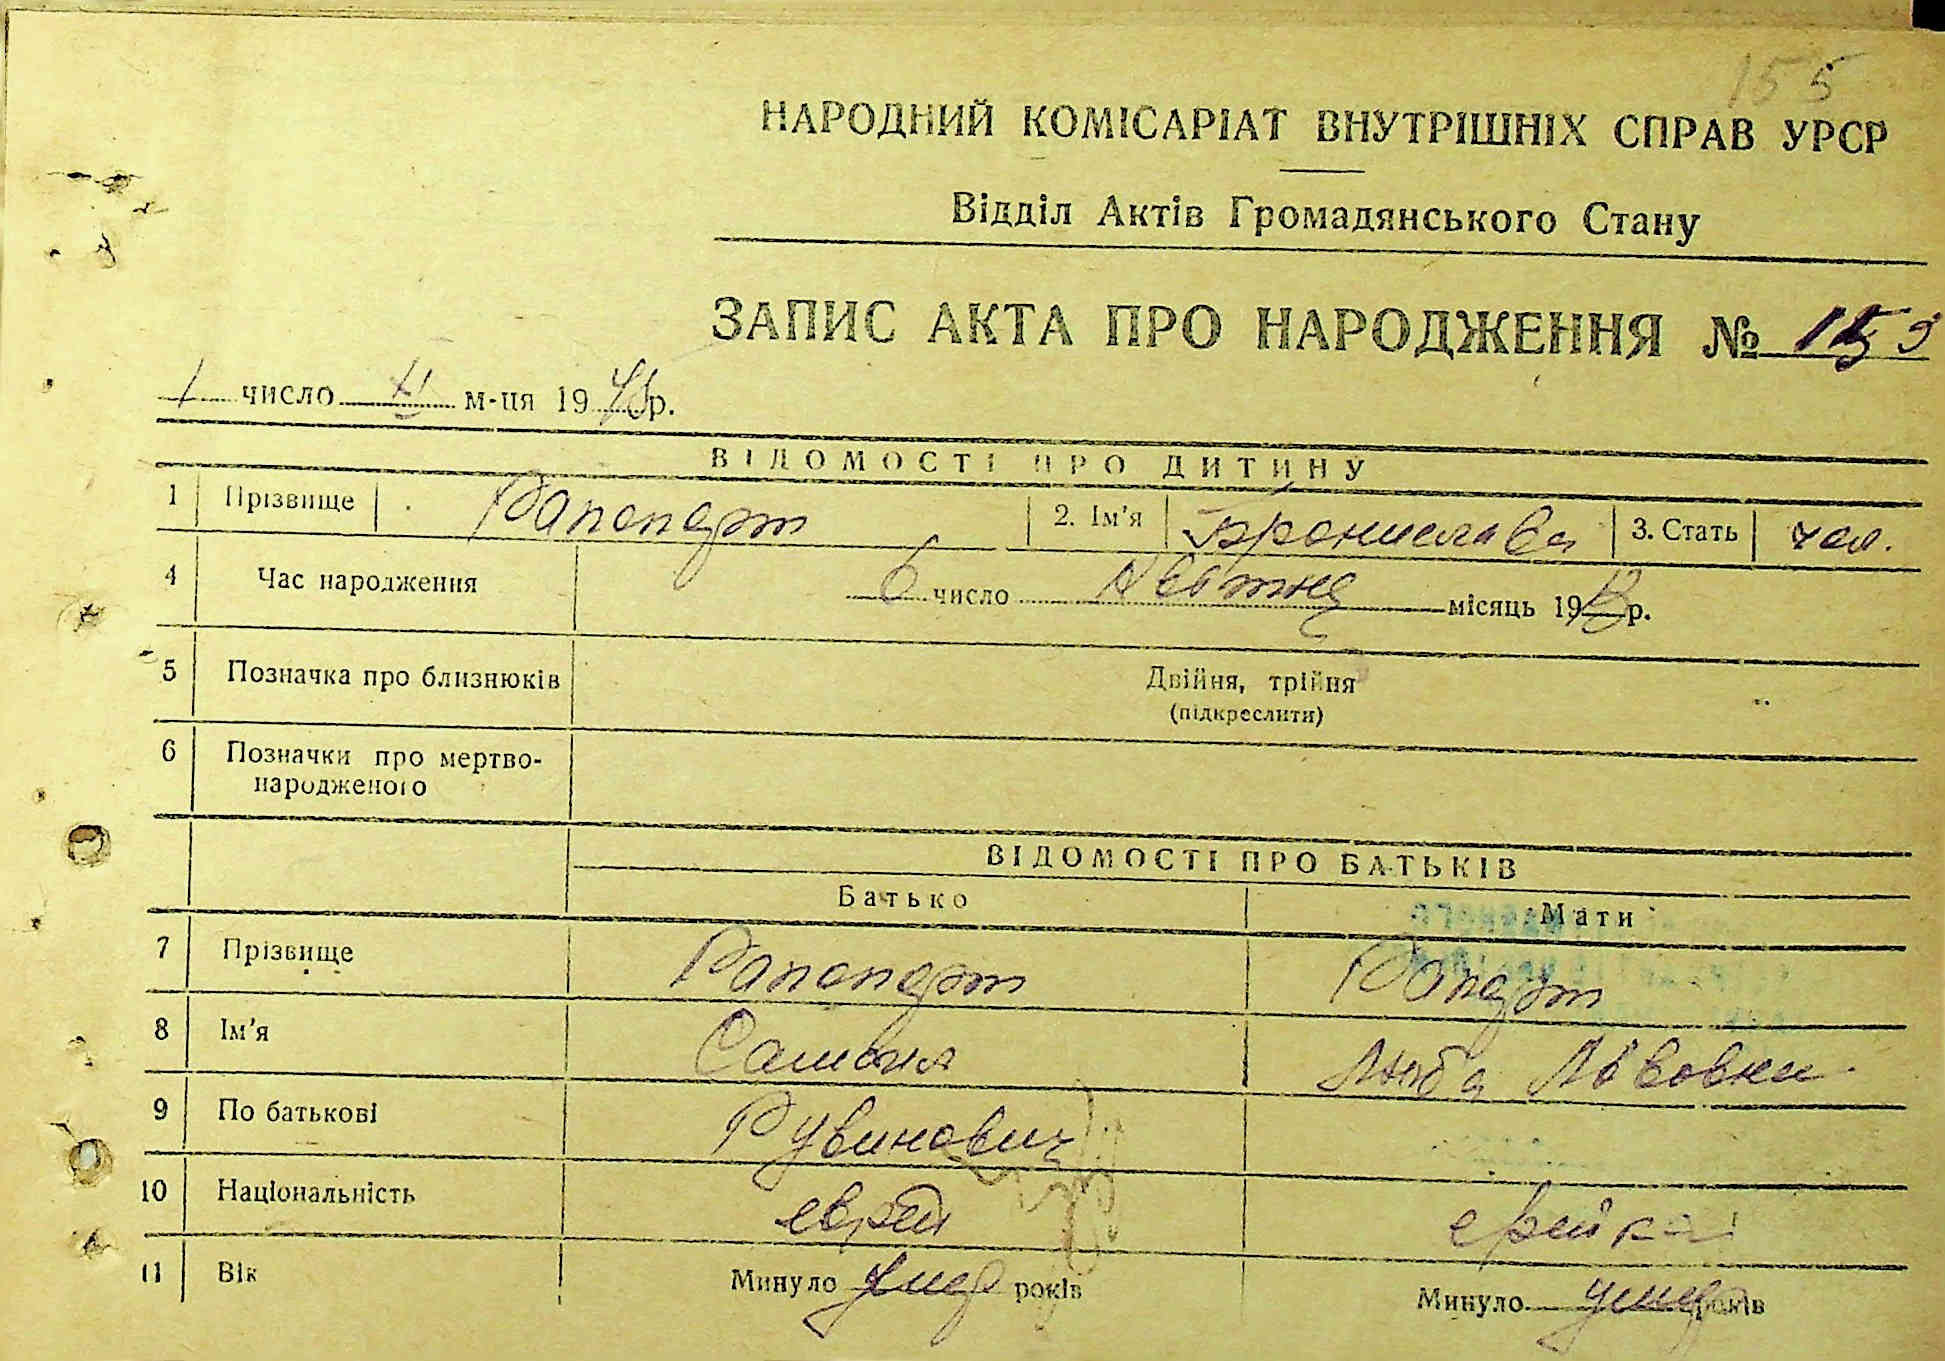 155
НАРОДНИЙ КОМІСАРІАТ ВНУТРІШНІХ СПРАВ УРСР
Відділ Актів Громадянського Стану
ЗАПИС АКТА ПРО НАРОДЖЕННЯ №
1 число м-ця 19 р.
ВІДОМОСТІ ПРО ДИТИНУ
1 Прізвище Рапопорт 2. Ім'я Бронислава 3. Стать чол.
4 Час народження 6 число місяць 19 р.
5 Позначка про близнюків Двійня, трійня
(підкреслити)
6 Позначки про мертво-
народженого
ВІДОМОСТІ ПРО БАТЬКІВ
Батько Мати
7 Прізвище Рапопорт Рапорт
8 Ім'я Самоил Люба Львовна
9 По батькові Рувинович
10 Національність еврей
11 Вік Минуло умер років Минуло років